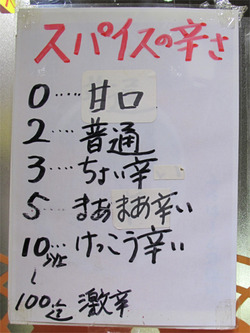 スパイスの辛さ
0……甘口
2……普通
3……ちょい辛
5……まぁまぁ辛い
10…けっこう辛い
〜
100迄 激辛